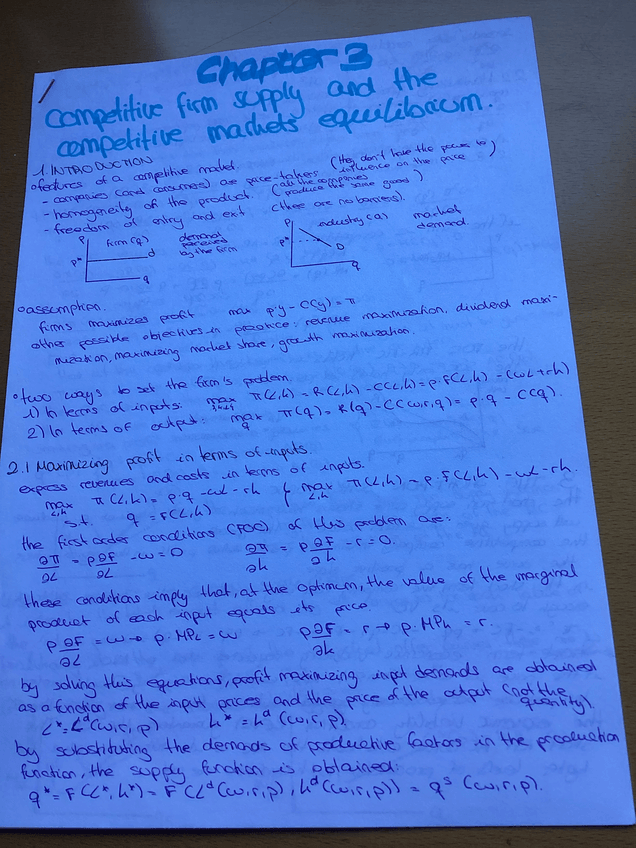 Chapter 3
Competitive firm supply and the
competitive markets equilibrium.
1. INTRODUCTION
°features of a competitive market.
- companies (and consumers) are price-takers (they don't have the power to influence on the price)
- homogeneity of the product. (all the companies produce the same good)
- freedom of entry and exit (there are no barriers).
P firm (q) demand perceived by the firm
P* d
q
P industry (Q) market demand
P* D
Q
°assumption.
firms maximizes profit max p·y - C(y) = π
other possible objectives in practice: revenue maximization, dividend maxi-
mization, maximizing market share, growth maximization.
°two ways to set the firm's problem
1) In terms of inputs: max L,k π(L,k) = R(L,k) - C(L,k) = p·F(L,k) - (wL+rk)
2) In terms of output: max q π(q) = R(q) - C(w,r,q) = p·q - C(q).
2.1 Maximizing profit in terms of inputs.
express revenues and costs in terms of inputs.
max L,k π(L,k) = p·q - wL - rk { max L,k π(L,k) = p·F(L,k) - wL - rk.
s.t. q = F(L,k)
the first order conditions (FOC) of this problem are:
∂π/∂L = p ∂F/∂L - w = 0 ∂π/∂k = p ∂F/∂k - r = 0.
these conditions imply that, at the optimum, the value of the marginal
product of each input equals its price.
p ∂F/∂L = w → p·MPL = w p ∂F/∂k = r → p·MPk = r.
by solving this equations, profit maximizing input demands are obtained
as a function of the input prices and the price of the output (not the quantity).
L* = L^d (w,r,p) k* = k^d (w,r,p)
by substituting the demands of productive factors in the production
function, the supply function is obtained:
q* = F(L*, k*) = F(L^d(w,r,p), k^d(w,r,p)) = q^s (w,r,p).